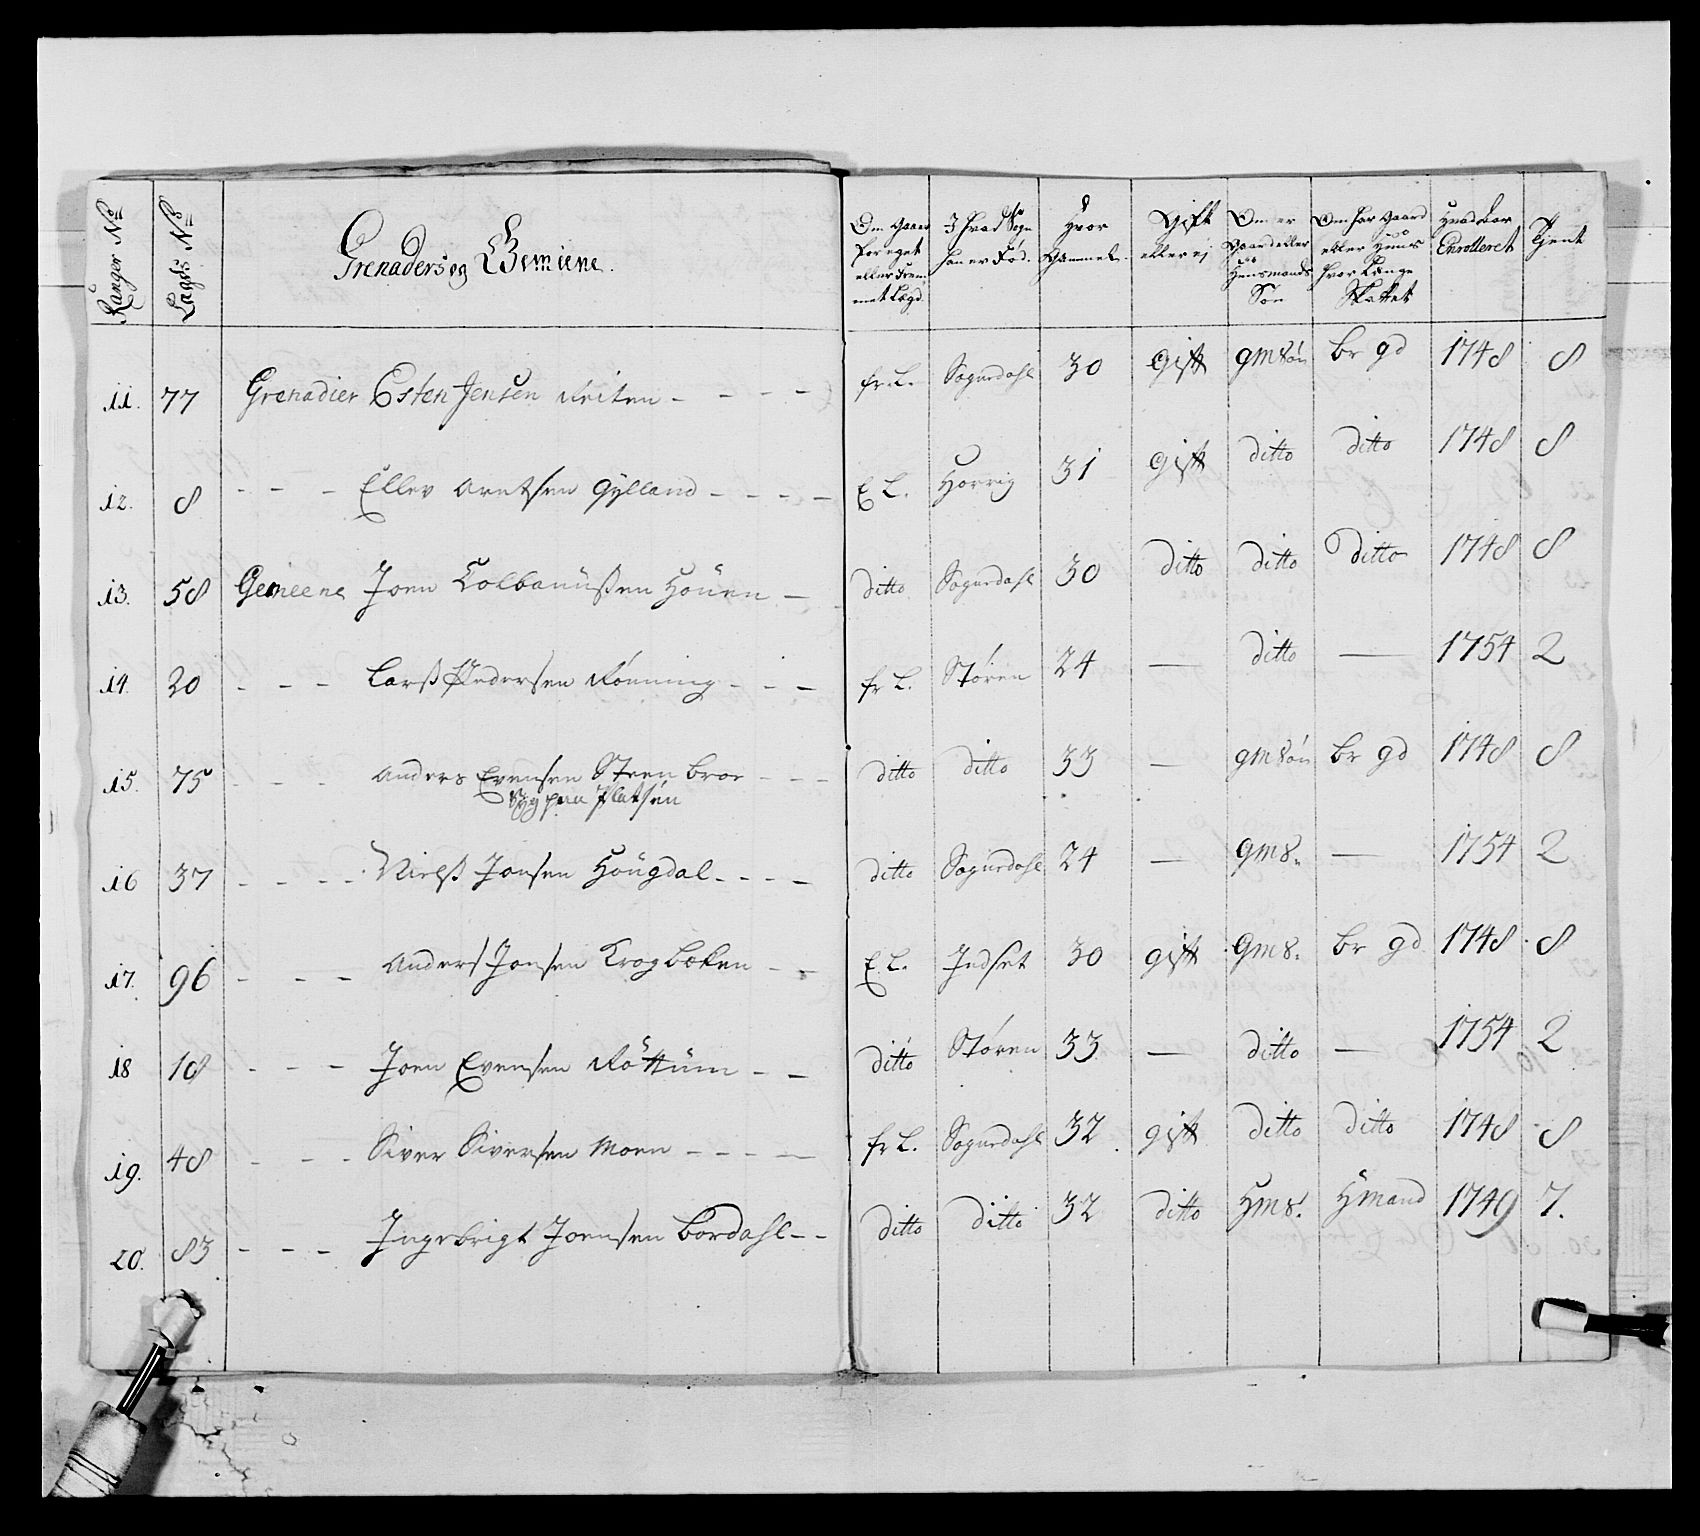 Ranger No Lægds No Grenaders og Gemeene. Om Gaard for eget eller frem met Lægd I hvad Sogn han er Fød. Hvor Gammel. Gift eller ej Om er Gaard eller Huusmands Søn Om har Gaard eller Huus hvor Længe Skattet Hvad Aar Enrolleret Tient
11. 77 Grenadier Esten Jensen Reiten - - - - fr. L. Sogurdahl 30 Gift gmsøn br gd 1748 8
12. 8 - - - Ellev Arntsen Gylland - - - - E L. Horrig 31 Gift ditto ditto 1748 8
13. 58 Gemeene Joen Colbanüssen Hoüen - ditto Sogurdahl 30 ditto ditto ditto 1748 8
14. 20 - - - Larss Pedersen Rönning - - - fr L. Støren 24 — ditto — 1754 2
15. 75 - - - Anders Evensen Steen broe - - - ditto ditto 33 — gmsøn br gd 1748 8
Syg paa Platsen
16 37 - - - - Nielss Jonsen Hoügdal - - - - ditto Sogurdahl 24 — gms. — 1754 2
17. 96 - - - Anders Jonsen Krogbæken - - E. L. Indset 30 gift Gms. br gd 1748 8
18 18 - - - Joen Evensen Röttüm - - ditto Støren 33 — ditto — 1754 2
19. 48 - - - Siver Siversen Moen - - - - fr L. Sogurdahl 32. gift ditto ditto 1748 8
20. 83 - - - Ingebrigt Joensen Bordahl - - ditto ditto 32 ditto Hms. Hmand 1749 7.